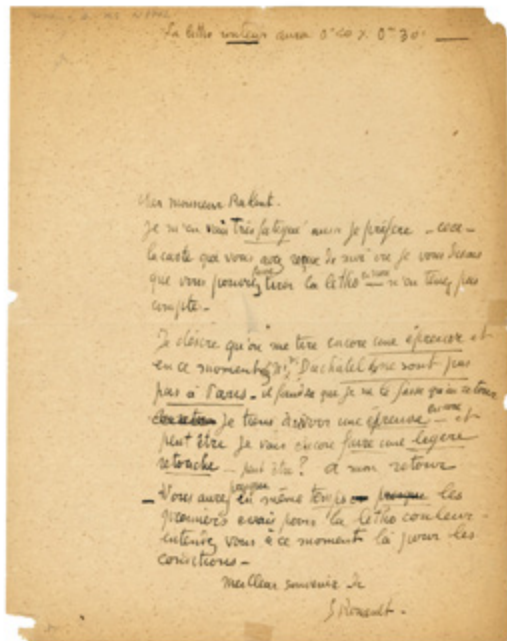 La litho couleur aura 0m40 X 0m30
Cher monsieur
Je m'en vais très fatigué aussi je préfère - ceci -
la carte que vous avez reçue de moi où je vous disais
que vous pouviez faire tirer la litho encore - n'en tenez pas
compte -
Je désire qu'on me tire encore une épreuve et
en ce moment Duchatel ne sont pas
pas à Paris - il faudra que je ne le fasse qu'au retour
Je tiens à avoir une épreuve encore - et
peut être je vais encore faire une légère
retouche - peut être? à mon retour
- Vous aurez presque en même temps presque les
premiers essais pour la litho couleur
entendez vous à ce moment là pour les
corrections -
Meilleur souvenir de
G Rouault -